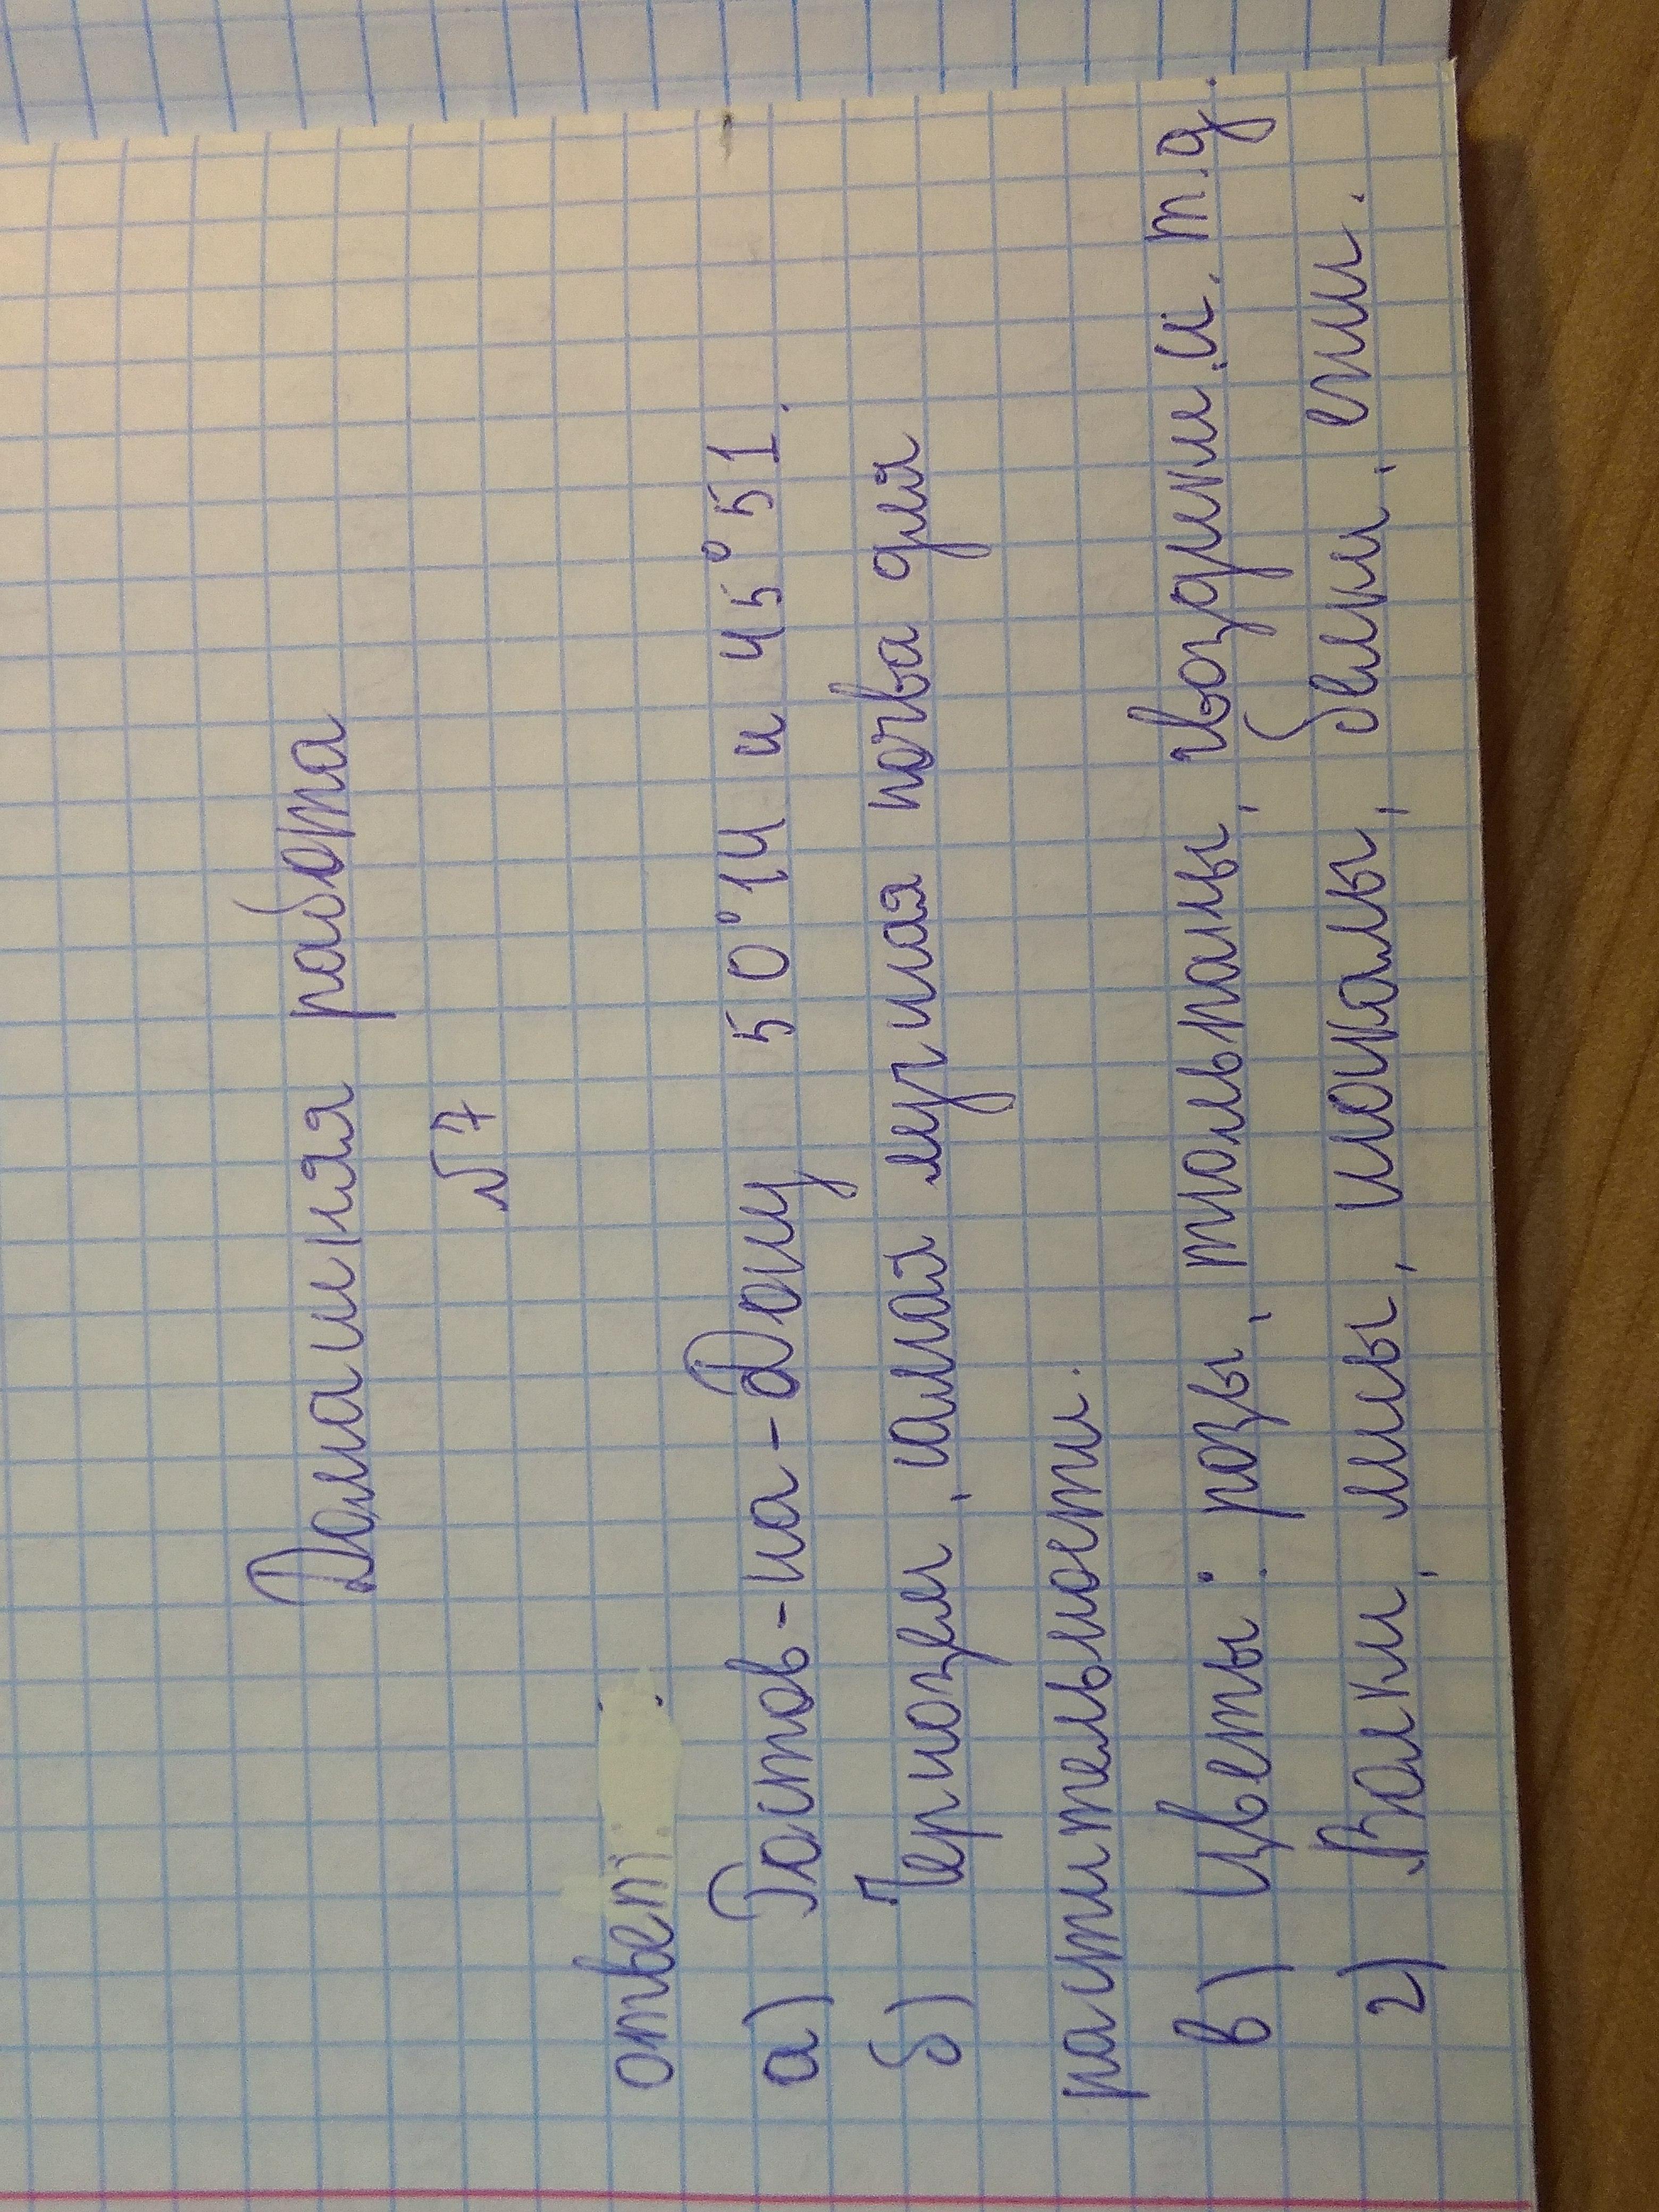 Домашняя работа
№7
ответ :
а) Ростов-на-Дону 50°14 и 45°51.
б) Чернозем, самая лучшая почва для
растительности.
в) Цветы: розы, тюльпаны, гвоздики.и. т.д.
г) Волки, лисы, шокалы, белки, ели.